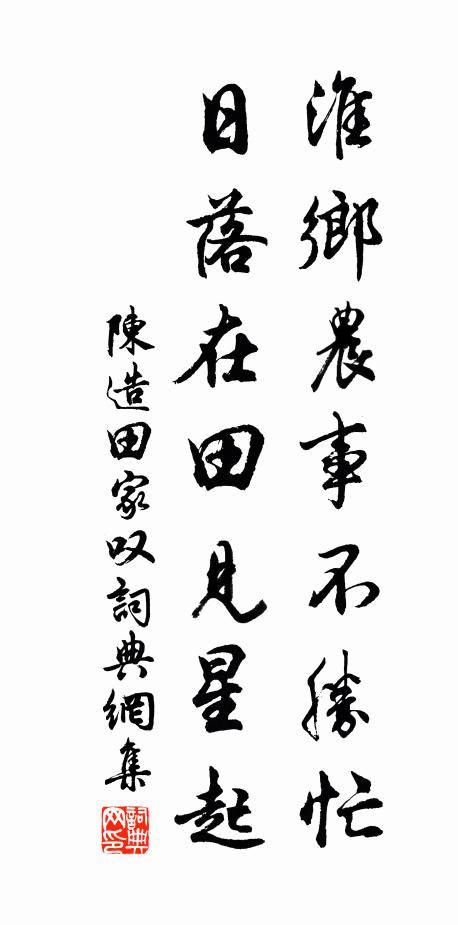 淮鄉農事不勝忙
日落在田見星起
陳造田家叹詞典網集
詞典网印